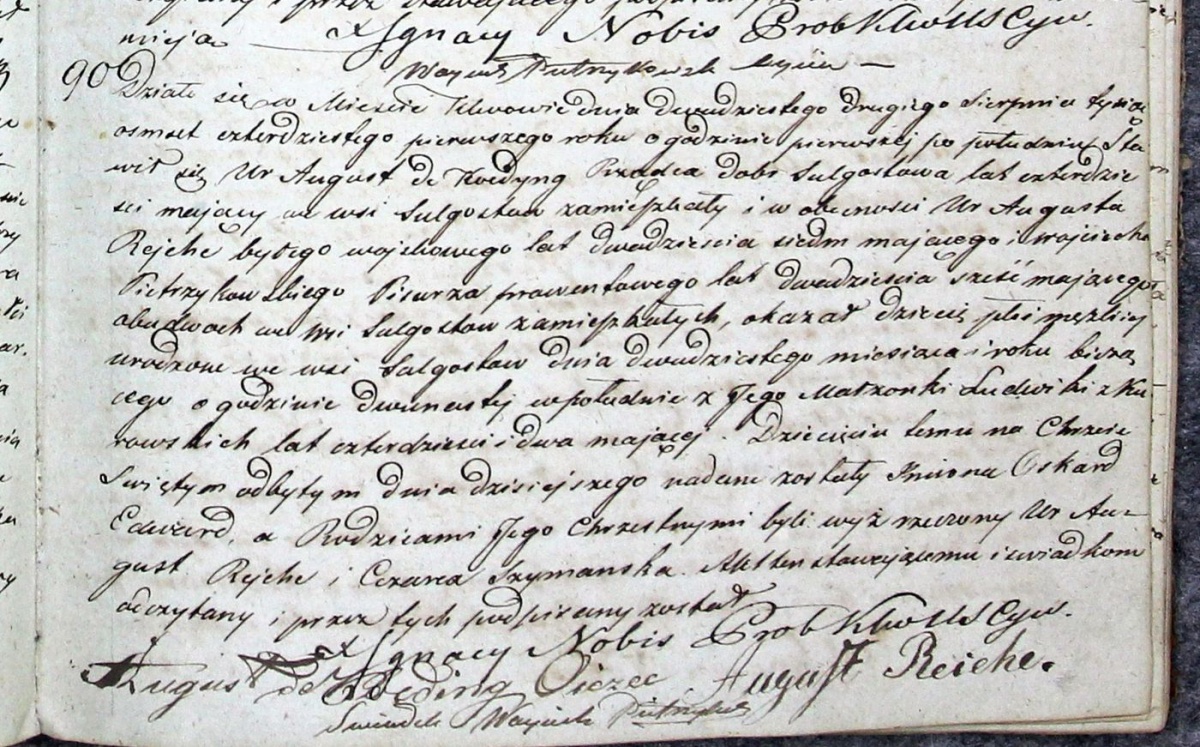 nieja X Ignacy Nobis Prob Klwo USCyw.
Wojciech Pietrzykowski
90 Działo się w Mieście Klwowie dnia dwudziestego drugiego Sierpnia tysiąc
osmset czterdziestego pierwszego roku o godzinie pierwszej po południu Sta
wił się Ur August de Koedyng Rządca dobr Sulgostowa lat czterdzie
ści mający we wsi Sulgostow zamieszkały i w obecności Ur Augusta
Rejche byłego wojskowego lat dwadzieścia siedm mającego i Wojciecha
Pietrzykowskiego Pisarza prowentowego lat dwadzieścia sześć mającego
obudwoch we Wsi Sulgostow zamieszkałych, okazał dziecię płci męzkiej
urodzone we wsi Sulgostow dnia dwudziestego miesiąca i roku bieżą
cego o godzinie dwunastej w południe z Jego Małżonki Ludwiki z Ku
rowskich lat czterdzieści i dwa mającej. Dziecięciu temu na Chrzcie
Świętym odbytym dnia dzisiejszego nadane zostały Imiona Oskard
Edward, a Rodzicami Jego Chrzestnymi byli wyż rzeczony Ur Au-
gust Rejche i Cezarea Szymanska. Akt ten stawającemu i świadkom
odczytany i przez tych podpisany został
X Ignacy Nobis Prob Klwo USCyw.
August de Kęding Oiczec August Reiche.
Swiadek Wojciech Pietrzykow